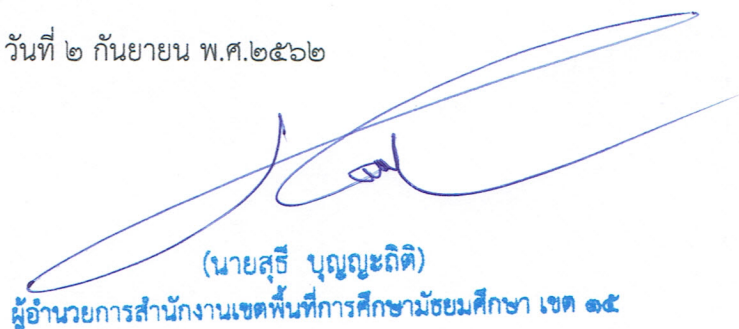 วันที่ ๒ กันยายน พ.ศ.๒๕๖๒
(นายสุธี  บุญญะถิติ)
ผู้อำนวยการสำนักงานเขตพื้นที่การศึกษามัธยมศึกษา เขต ๑๕